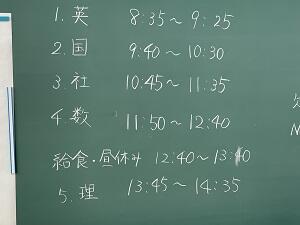 1. 英 8:35～9:25
2. 国 9:40～10:30
3. 社 10:45～11:35
4. 数 11:50～12:40
給食・昼休み 12:40～13:40
5. 理 13:45～14:35